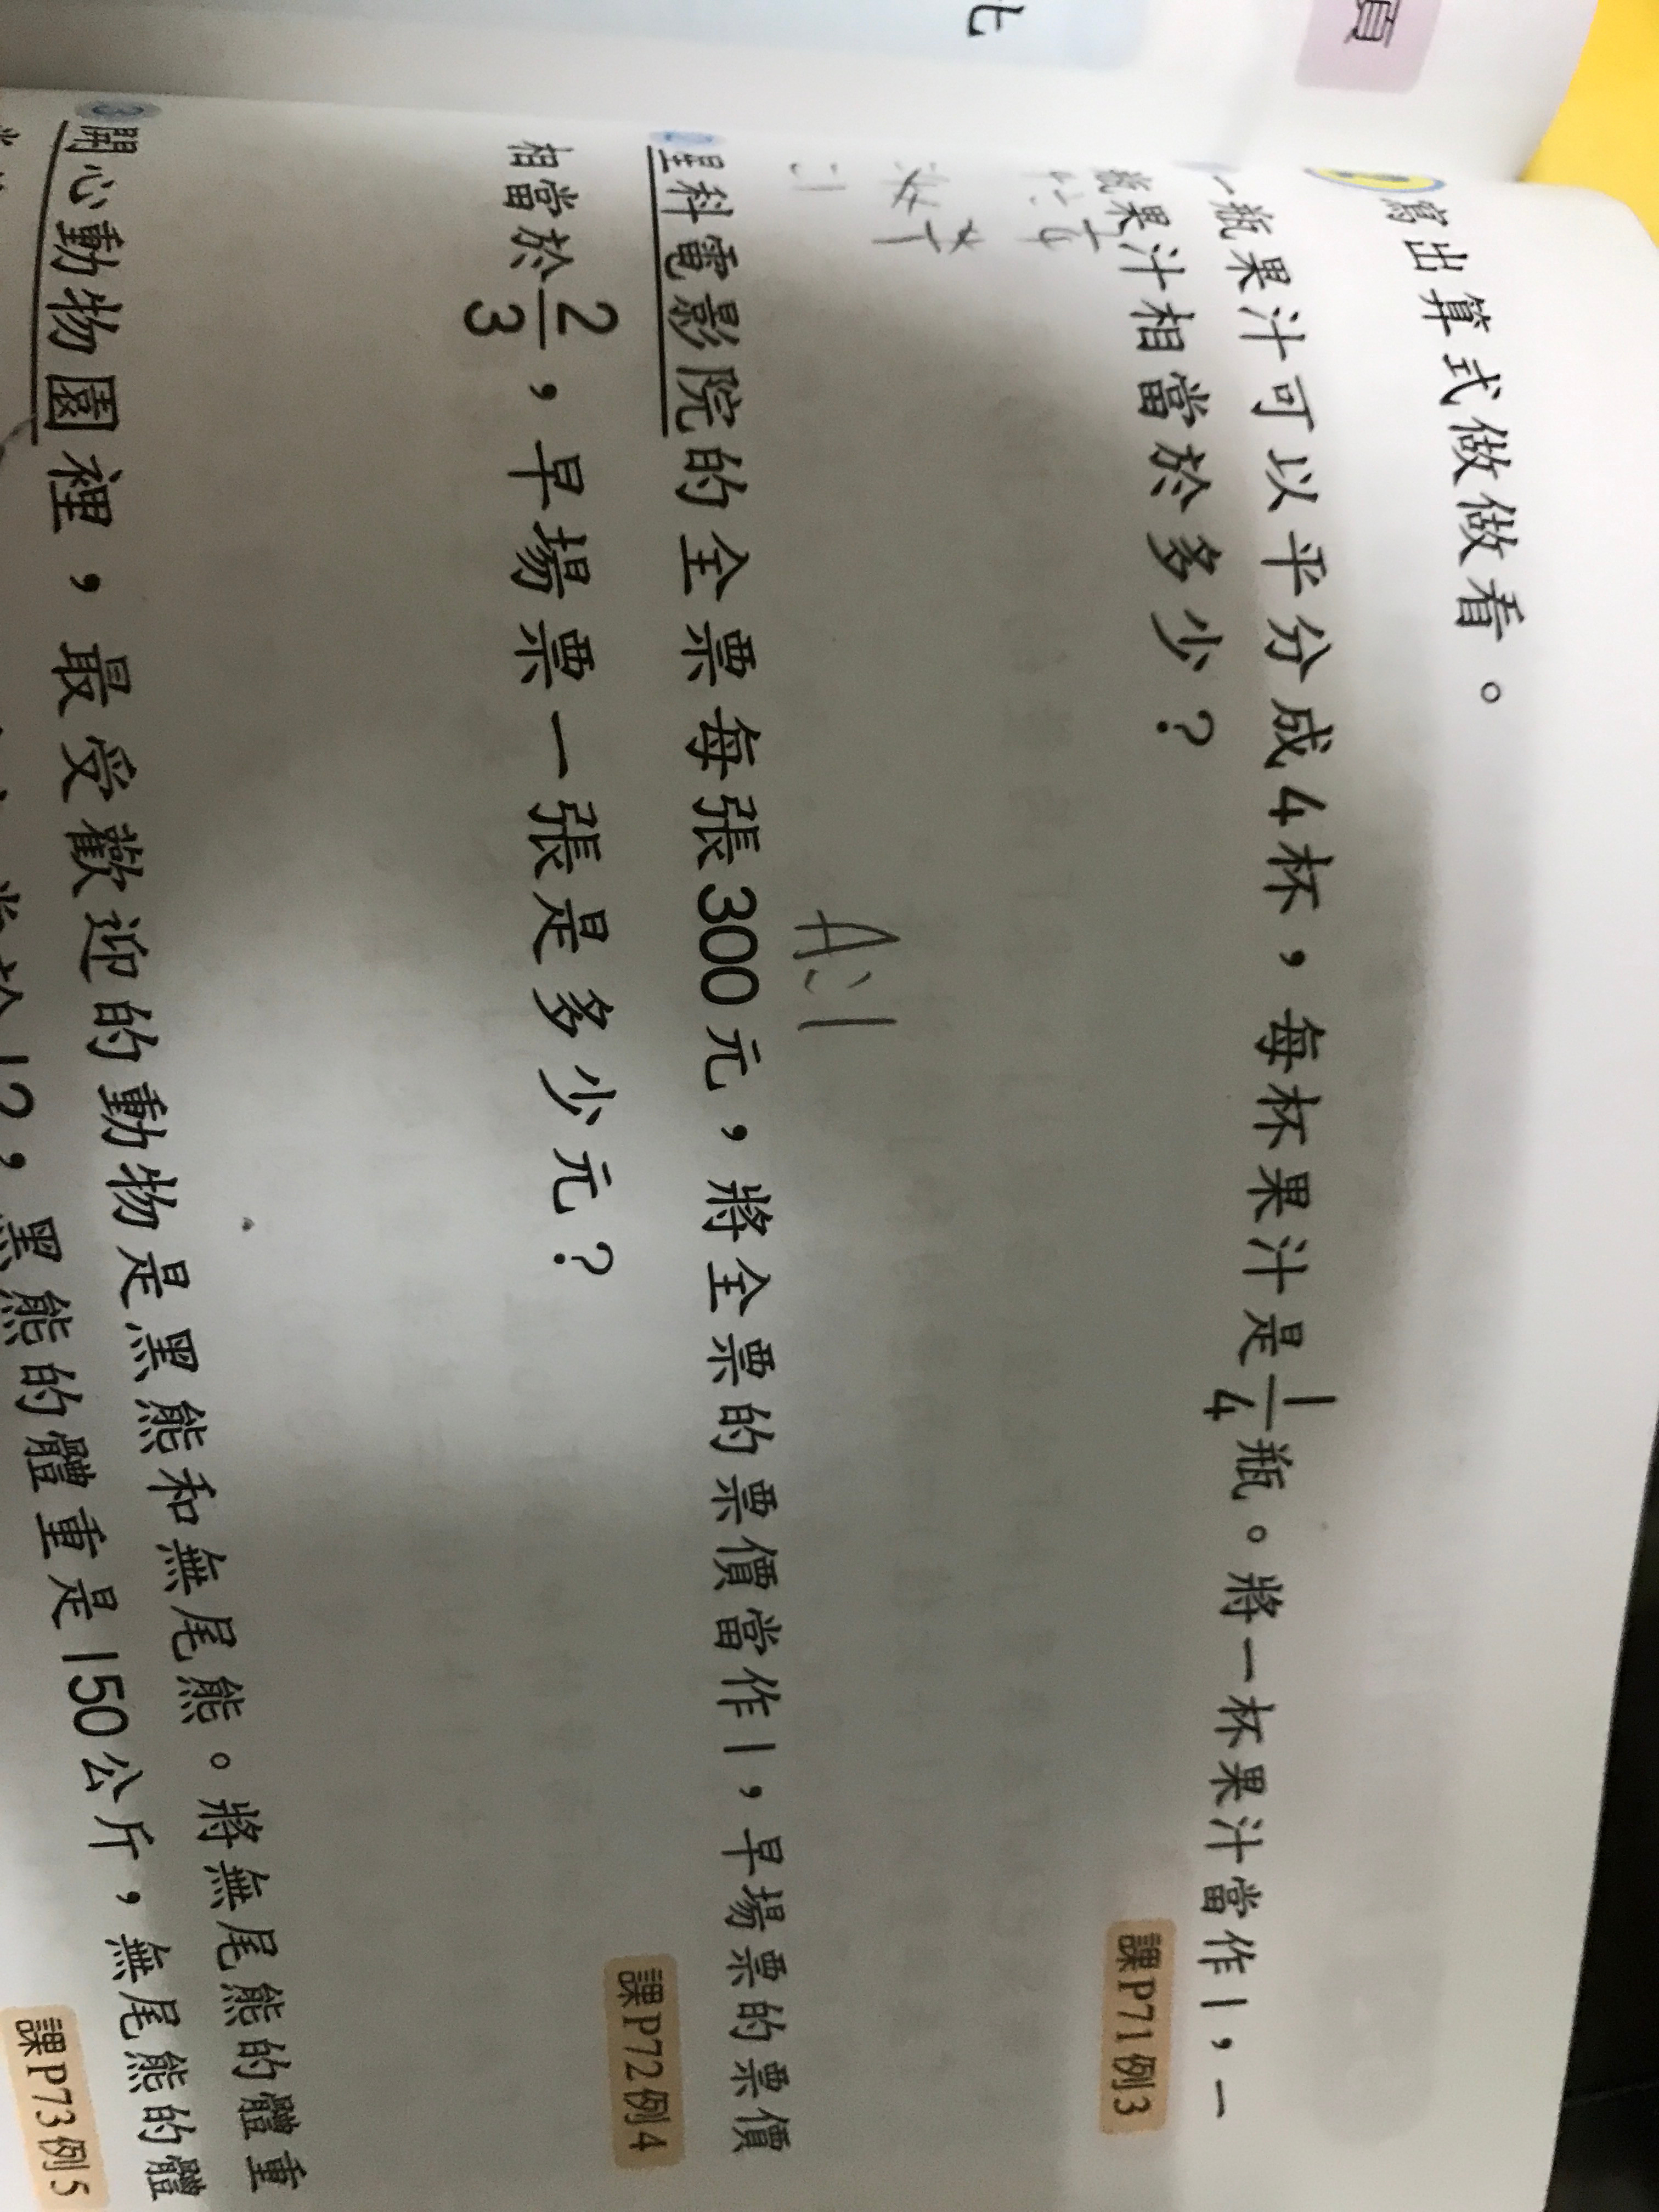 頁
北
寫出算式做做看。
一瓶果汁可以平分成4杯，每杯果汁是1/4瓶。將一杯果汁當作1，一
瓶果汁相當於多少？
課P71例3
A:1
星科電影院的全票每張300元，將全票的票價當作1，早場票的票價
相當於2/3，早場票一張是多少元？
課P72例4
3 開心動物園裡，最受歡迎的動物是黑熊和無尾熊。將無尾熊的體重
12，黑熊的體重是150公斤，無尾熊的體
課P73例5